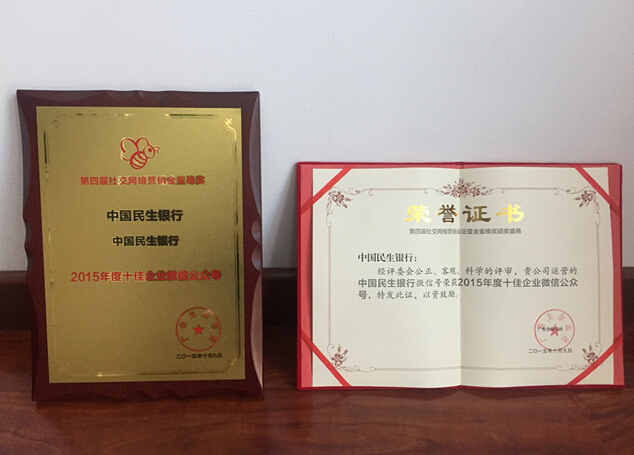 第四届社交网络营销金蜜蜂奖
中国民生银行
中国民生银行
2015年度十佳企业微信公众号
二〇一五年十月九日
荣誉证书
第四届社交网络营销论坛暨金蜜蜂奖颁奖盛典
中国民生银行:
经评委会公正、客观、科学的评审,贵公司运营的
中国民生银行微信号荣获2015年度十佳企业微信公众
号,特发此证,以资鼓励。
二〇一五年十月九日